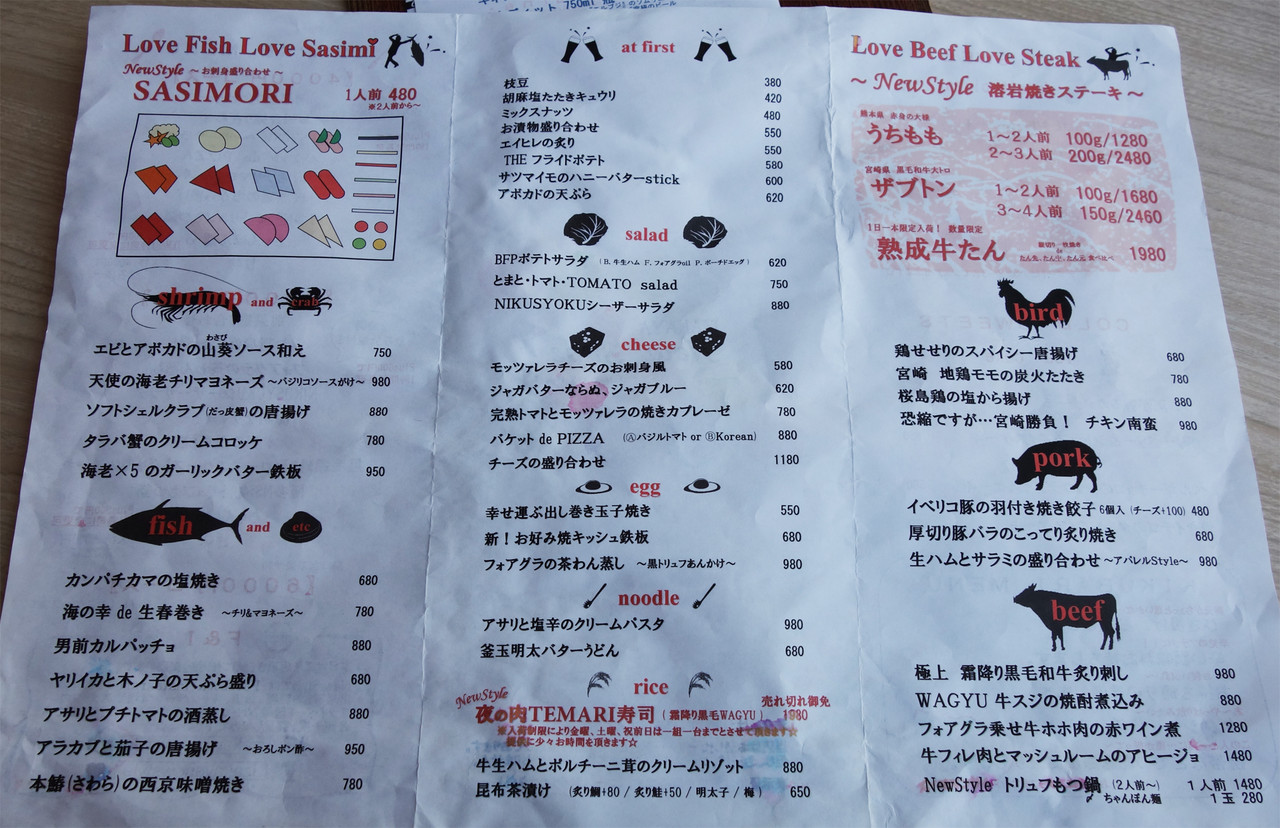 Love Fish Love Sasimi
NewStyle ～お刺身盛り合わせ～
SASIMORI 1人前 480
※2人前から～
shrimp and crab
わさび
エビとアボカドの山葵ソース和え 750
天使の海老チリマヨネーズ ～バジリコソースがけ～ 980
ソフトシェルクラブ(だっ皮蟹)の唐揚げ 880
タラバ蟹のクリームコロッケ 780
海老×5 のガーリックバター鉄板 950
fish and etc
カンパチカマの塩焼き 680
海の幸 de 生春巻き ～チリ&マヨネーズ～ 780
男前カルパッチョ 880
ヤリイカと木ノ子の天ぷら盛り 680
アサリとプチトマトの酒蒸し 880
アラカブと茄子の唐揚げ ～おろしポン酢～ 950
本鰆(さわら)の西京味噌焼き 780
750ml
at first
枝豆 380
胡麻塩たたきキュウリ 420
ミックスナッツ 480
お漬物盛り合わせ 550
エイヒレの炙り 550
THE フライドポテト 580
サツマイモのハニーバターstick 600
アボカドの天ぷら 620
salad
BFPポテトサラダ (B.牛生ハム F.フォアグラoil P.ポーチドエッグ) 620
とまと・トマト・TOMATO salad 750
NIKUSYOKUシーザーサラダ 880
cheese
モッツァレラチーズのお刺身風 580
ジャガバターならぬ、ジャガブルー 620
完熟トマトとモッツァレラの焼きカプレーゼ 780
バケット de PIZZA (Ⓐバジルトマト or ⒷKorean) 880
チーズの盛り合わせ 1180
egg
幸せ運ぶ出し巻き玉子焼き 550
新！お好み焼キッシュ鉄板 680
フォアグラの茶わん蒸し ～黒トリュフあんかけ～ 980
noodle
アサリと塩辛のクリームパスタ 980
釜玉明太バターうどん 680
rice
NewStyle 売れ切れ御免
夜の肉TEMARI寿司 (霜降り黒毛WAGYU) 1980
※入荷制限により金曜、土曜、祝前日は一組一台までとさせて頂きます☆
提供に少々お時間を頂きます☆
牛生ハムとポルチーニ茸のクリームリゾット 880
昆布茶漬け (炙り鯛+80 / 炙り鮭+50 / 明太子 / 梅) 650
Love Beef Love Steak
～ NewStyle 溶岩焼きステーキ～
熊本県 赤身の大様
うちもも 1～2人前 100g/1280
2～3人前 200g/2480
宮崎県 黒毛和牛大トロ
ザブトン 1～2人前 100g/1680
3～4人前 150g/2460
1日一本限定入荷！ 数量限定
熟成牛たん たん先、たん中、たん元、食べ比べ 1980
bird
鶏せせりのスパイシー唐揚げ 680
宮崎 地鶏モモの炭火たたき 780
桜島鶏の塩から揚げ 880
恐縮ですが…宮崎勝負！ チキン南蛮 980
pork
イベリコ豚の羽付き焼き餃子 6個入 (チーズ+100) 480
厚切り豚バラのこってり炙り焼き 680
生ハムとサラミの盛り合わせ ～アパレルStyle～ 980
beef
極上 霜降り黒毛和牛炙り刺し 980
WAGYU 牛スジの焼酎煮込み 880
フォアグラ乗せ牛ホホ肉の赤ワイン煮 1280
牛フィレ肉とマッシュルームのアヒージョ 1480
NewStyle トリュフもつ鍋 (2人前～) 1人前 1480
ちゃんぽん麺 1玉 280